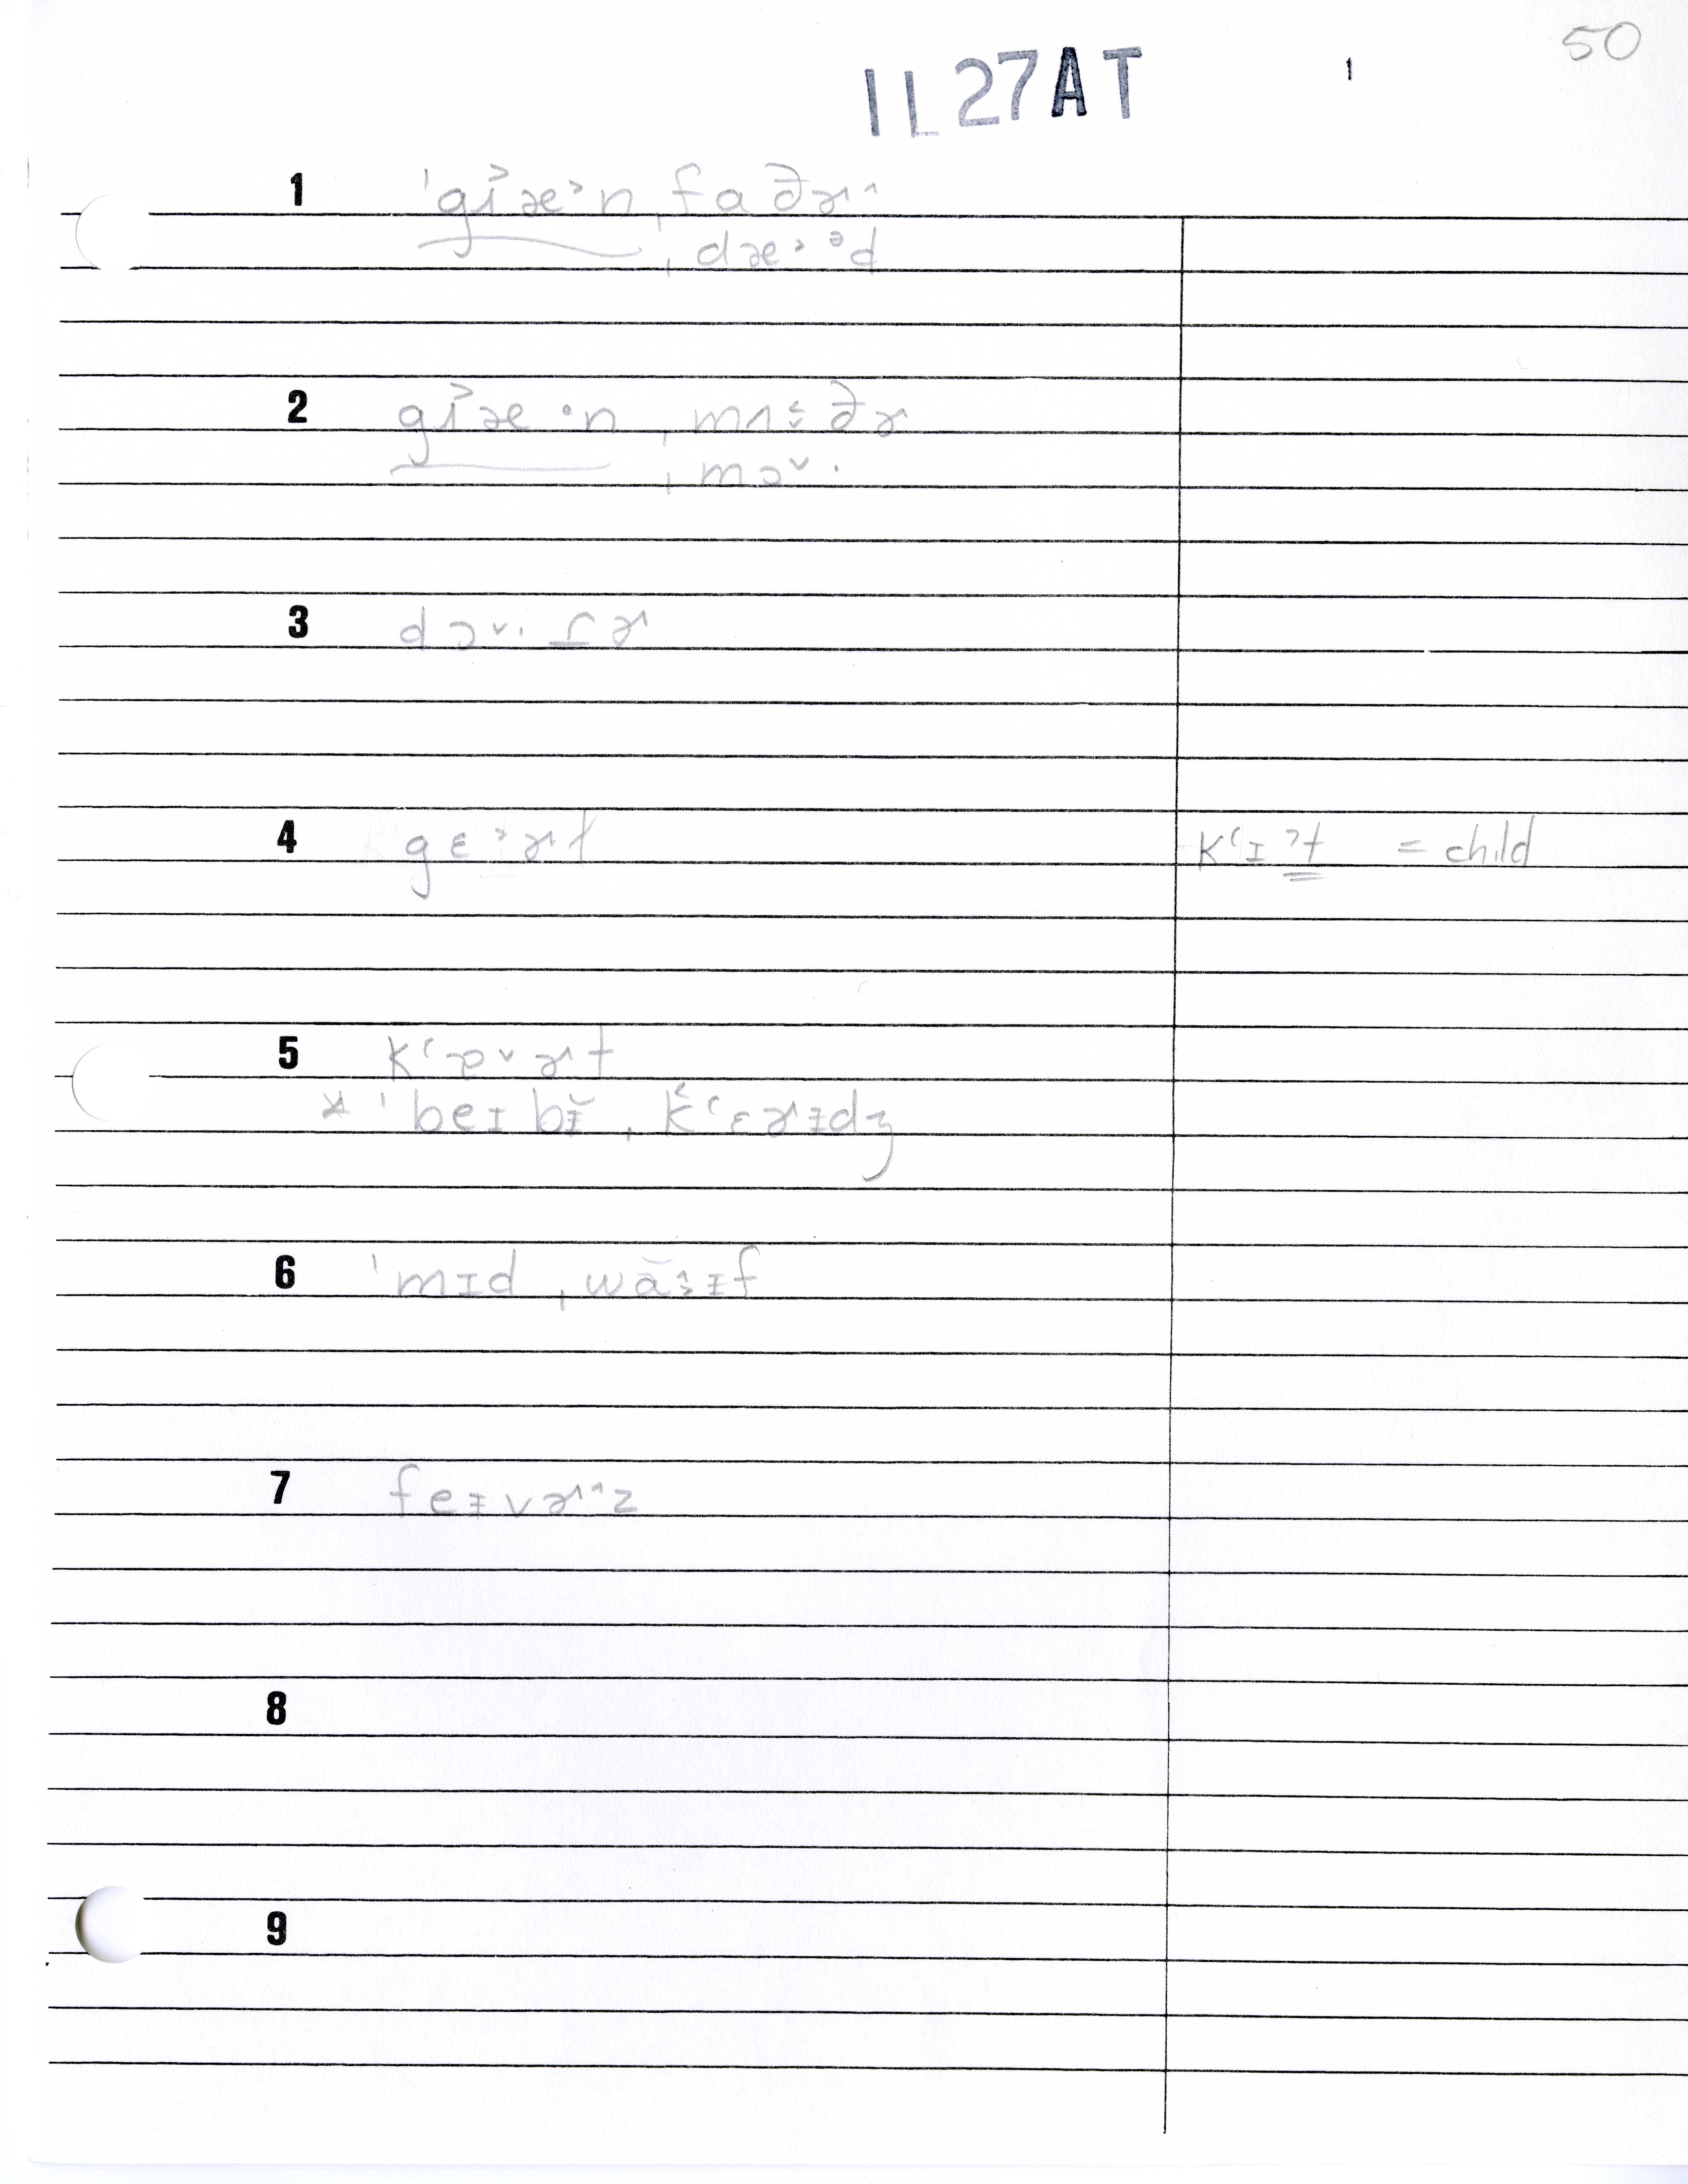 50
IL 27 AT 1
1 ˈgɨ˃æ˃n ˌfaðɚ^
ˌdæ˃ᵊd
2 gɨ˃æ·n ˌmʌ˂ːðɚ
ˌmɔ˅·
3 dɔ˅·ɾ̲ɚ
4 gɛ˃ɚɫ kʻɪˀt = child
5 kʻɒ˅ɚt
* ˈbeɪbɪ̆ ˌk̂ʻɛɚɪdʒ
6 ˈmɪdˌwăːɪf
7 feɪvɚ^z
8
9